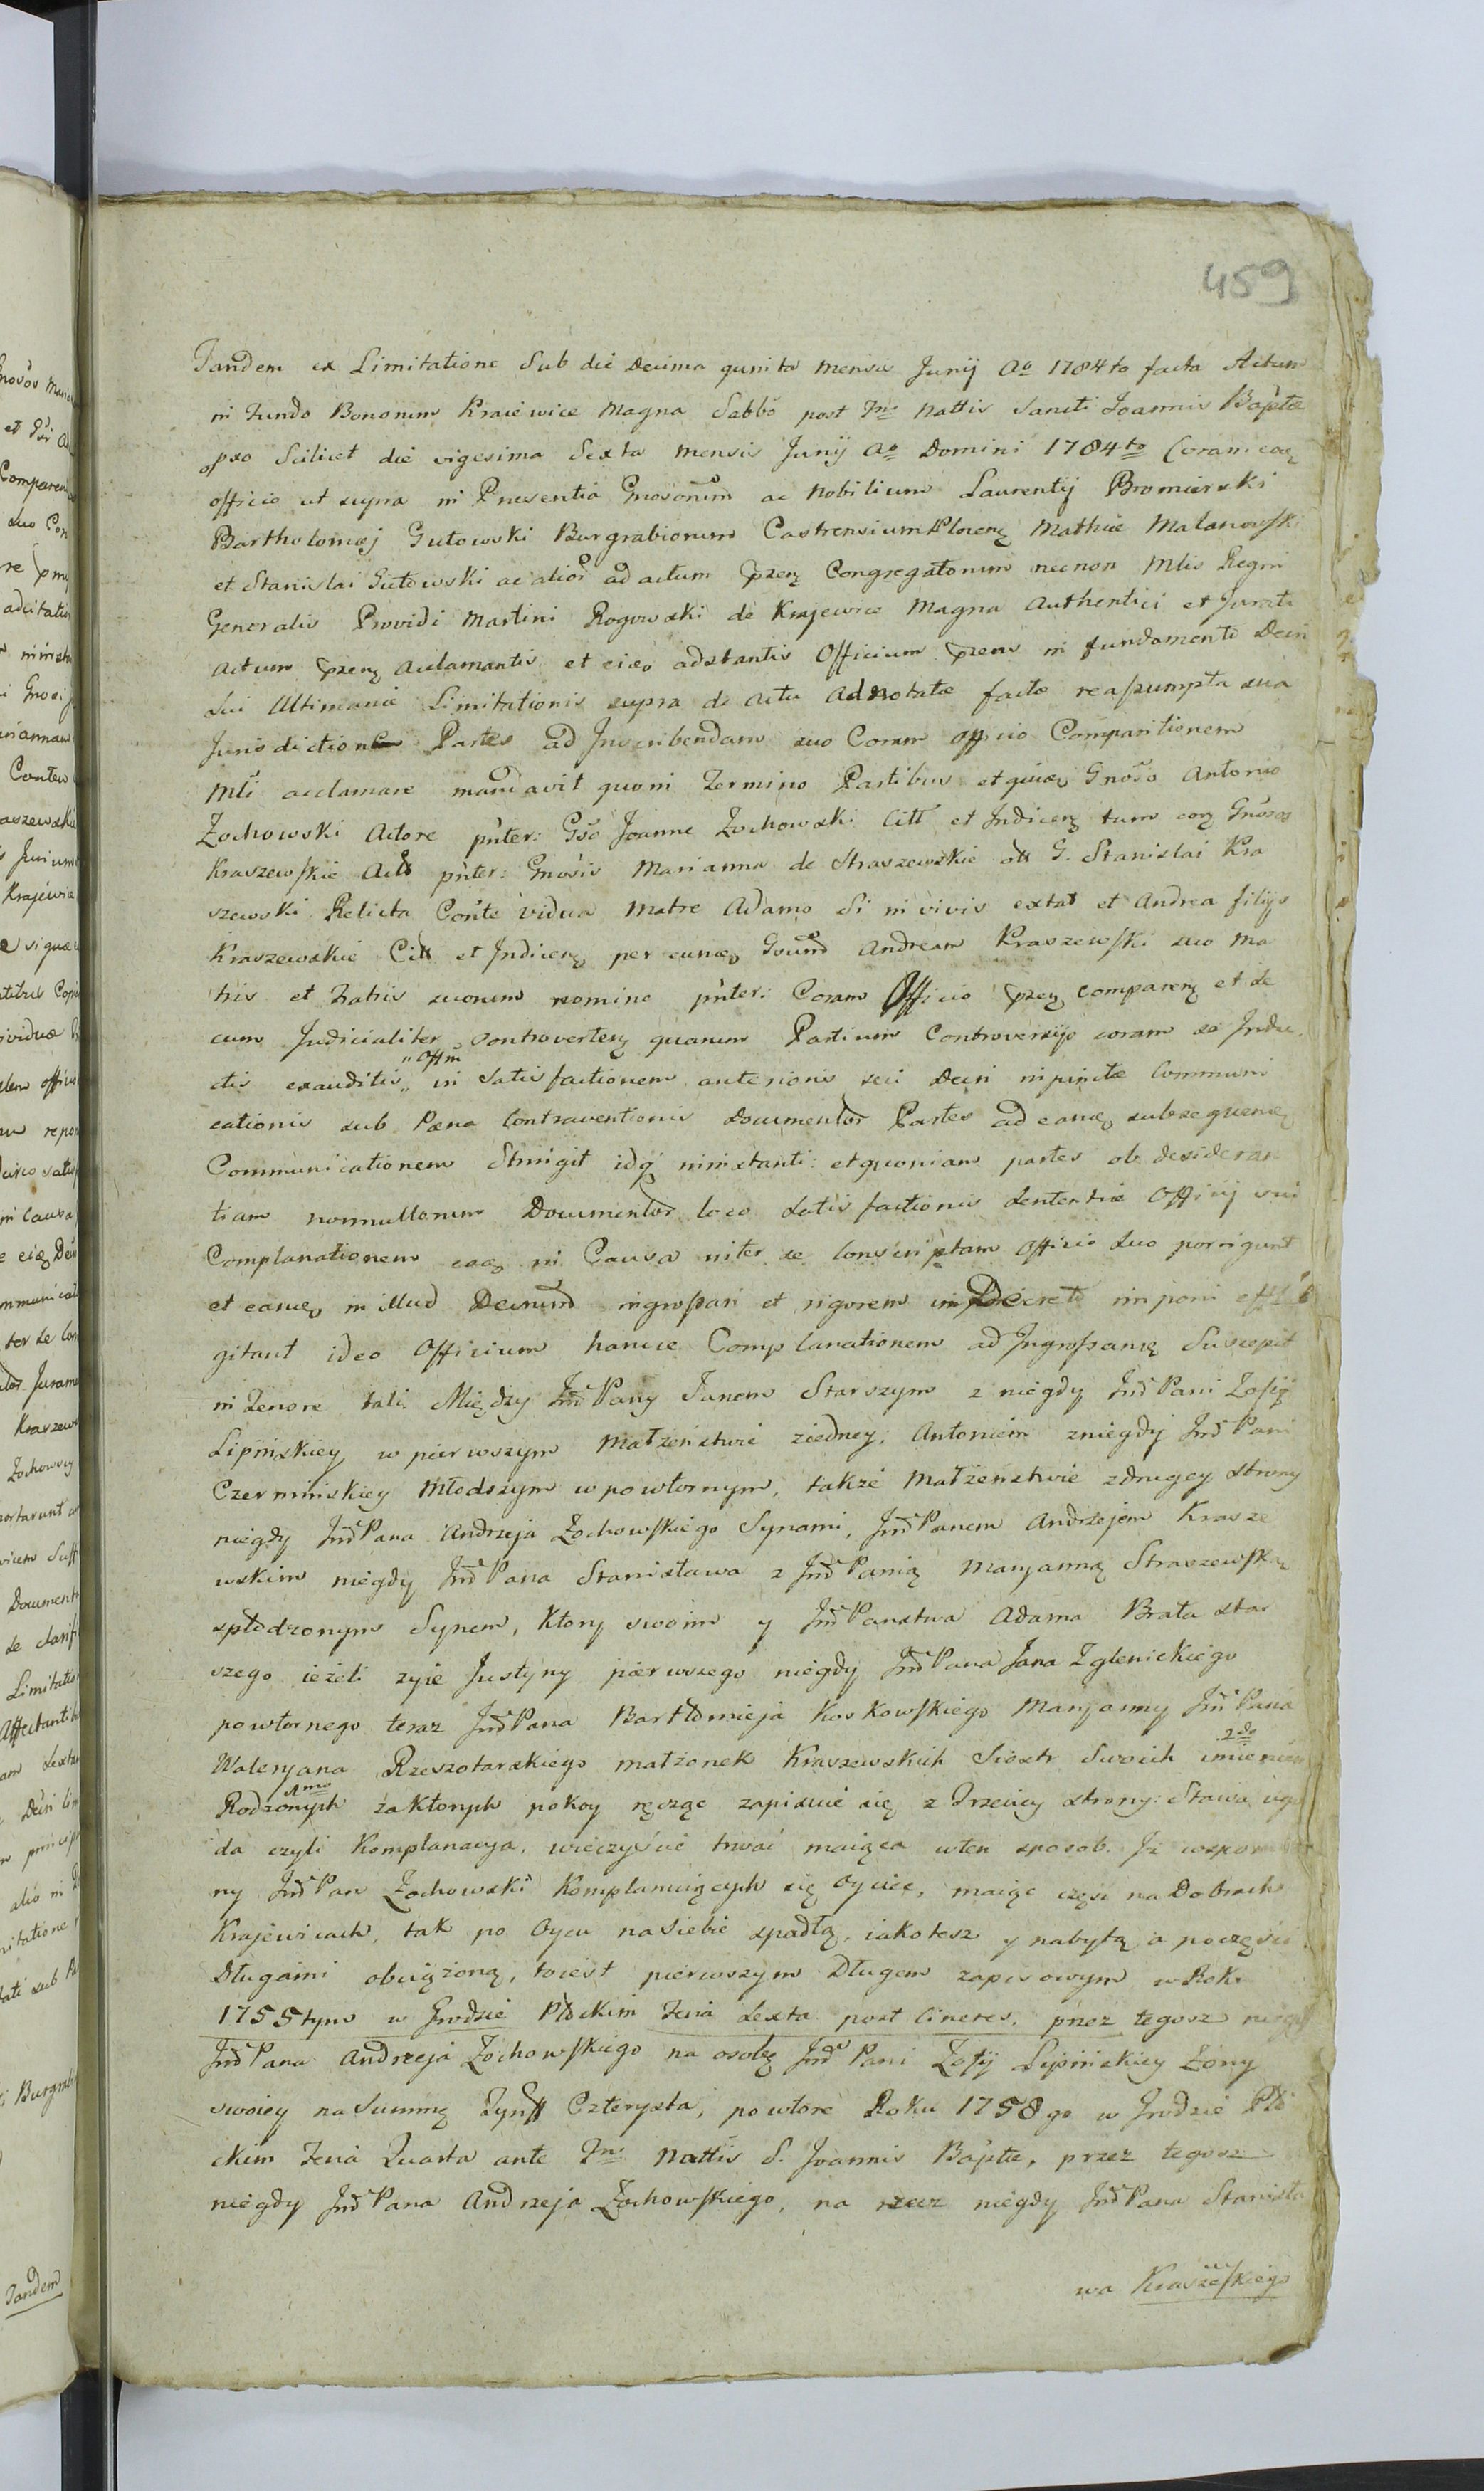 459
Tandem ex Limitatione Sub die Decima quinta mensis Junij Ao 1784to facta Actum
in Fundo Bonorum Kraiewice Magna Sabbo post Fm Nattis Sancti Joannis Baptæ
pxo Scilicet die vigesima Sexta mensis Junij Ao Domini 1784to Coram eoq
officio ut supra in Presentia Gnosorum ac Nobilium Laurentij Bromierski
Bartholomæj Gutowski Burgrabiorum Castrensium Plocen Mathiæ Malanowski
et Stanislai Gutowski ac alior ad actum przen Congregatorum necnon Mlis Regni
Generalis Providi Martini Rogowski de Krajewice Magna Authentici et Jurati
Actum przen acclamantis et eiąo adstantis Officium przens in fundamento Decri
sui Ultimariæ Limitationis supra de actu adnotatæ factæ reaszumpta sua
Jurisdictione Partes ad Inscribendam suo Coram officio Comparitionem
Mli acclamare mandavit quo in Termino Partibus et quidem Gnoso Antonio
Zochowski Actore pnter: Gso Joanne Zochowski Citt et Indicen tum eoq Gnosos
Kraszewskie Act pnter: Gnosis Marianna de Straszewskie olt G. Stanislai Kra
szewski Relicta Conte vidua Matre Adamo Si in vivis extat et Andrea filijs
Kraszewskie Citt et Indicen per eunq Gsum Andream Kraszewski suo ma
tris et Fratris suorum nomine pnter: Coram Officio przen comparen et se
cum Judicialiter Controverten quarum Partium Controversijs coram se Indu
ctis exauditis "Offm in Satisfactionem anterioris sui Decri inpunctæ Communi
cationis sub Pæna Contraventionis Documentor Partes ad eanq subsequenq
Communicationem Stringit idq ninstanti: et quoniam partes ob desideran
tiam nonnullorum Documentor loco Satisfactionis Sententiæ Officij sui
Complanationem eaq in Causa inter se Conscriptam Officio Suo porrigunt
et eanq in illud Decrum ingrossari et rigorem in Decreti inponi effla
gitant ideo Officium hance Complanationem ad Ingrossanq Suscepit
in Tenore tali. Między Jmc Pany Janem Starszym z niegdy Jmc Pani Zofiy
Lipińskiey w pierwszym Małżeństwie ziedney; Antoniem zniegdy Jmc Pani
Czermińskiey Młodszym w powtornym, także Małżeństwie zdrugey strony
niegdy Jmc Pana Andrzeja Zochowskiego Synami, Jmc Panem Andrzejem Krasze
wskim niegdy Jmc Pana Stanisława z Jmc Panią Maryanną Straszewską
spłodzonym Synem, Ktory swoim y Jmc Panstwa Adama Brata star
szego ieżeli zyie Justyny pierwszego niegdy Jmc Pana Jana Zglenickiego
powtornego teraz Jmc Pana Bartłomieja Koskowskiego Maryanny Jmc Pana
Waleryana Rzeszotarskiego małżonek Kraszewskich Siostr Swoich 2do imieniem
Rodzonych 1mo zaktorych pokoy ręcząc zapisuie się z Trzeciey strony: Stawa ugo
da czyli Komplanacya, wieczyście trwać maiąca wten sposob. Iż wspomnio
ny Jmc Pan Zochowski Komplanuiących się Oyciec, maiąc częsc na Dobrach
Krajewicach, tak po Oycu nasiebie spadłą, iakotesz y nabytą a poczęsci
Długami obciążoną, toiest pierwszym Długem zapisowym w Roku
1755tym w Grodzie Płockim Feria Sexta post Cineres, przez tegosz niegdy
Jmc Pana Andrzeja Zochowskiego na osobę Jmc Pani Zofij Lipińskiey Zony
swoiey na Summę Tynff Czterysta, powtore Roku 1758go w Grodzie Pło
ckim Feria Quarta ante Fm Nattis S. Joannis Baptæ, przez tegosz
niegdy Jmc Pana Andrzeja Zochowskiego, na rzecz niegdy Jmc Pana Stanisła
wa Kraszewskiego
Tandem